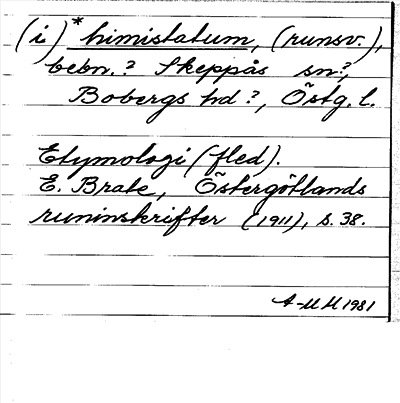 (i) *himistatum, (runsv.),
bebn.? Skeppås sn?,
Bobergs hd?, Östg. l.
Etymologi (fled).
E. Brate, Östergötlands
runinskrifter (1911), s. 38.
A-M H 1981